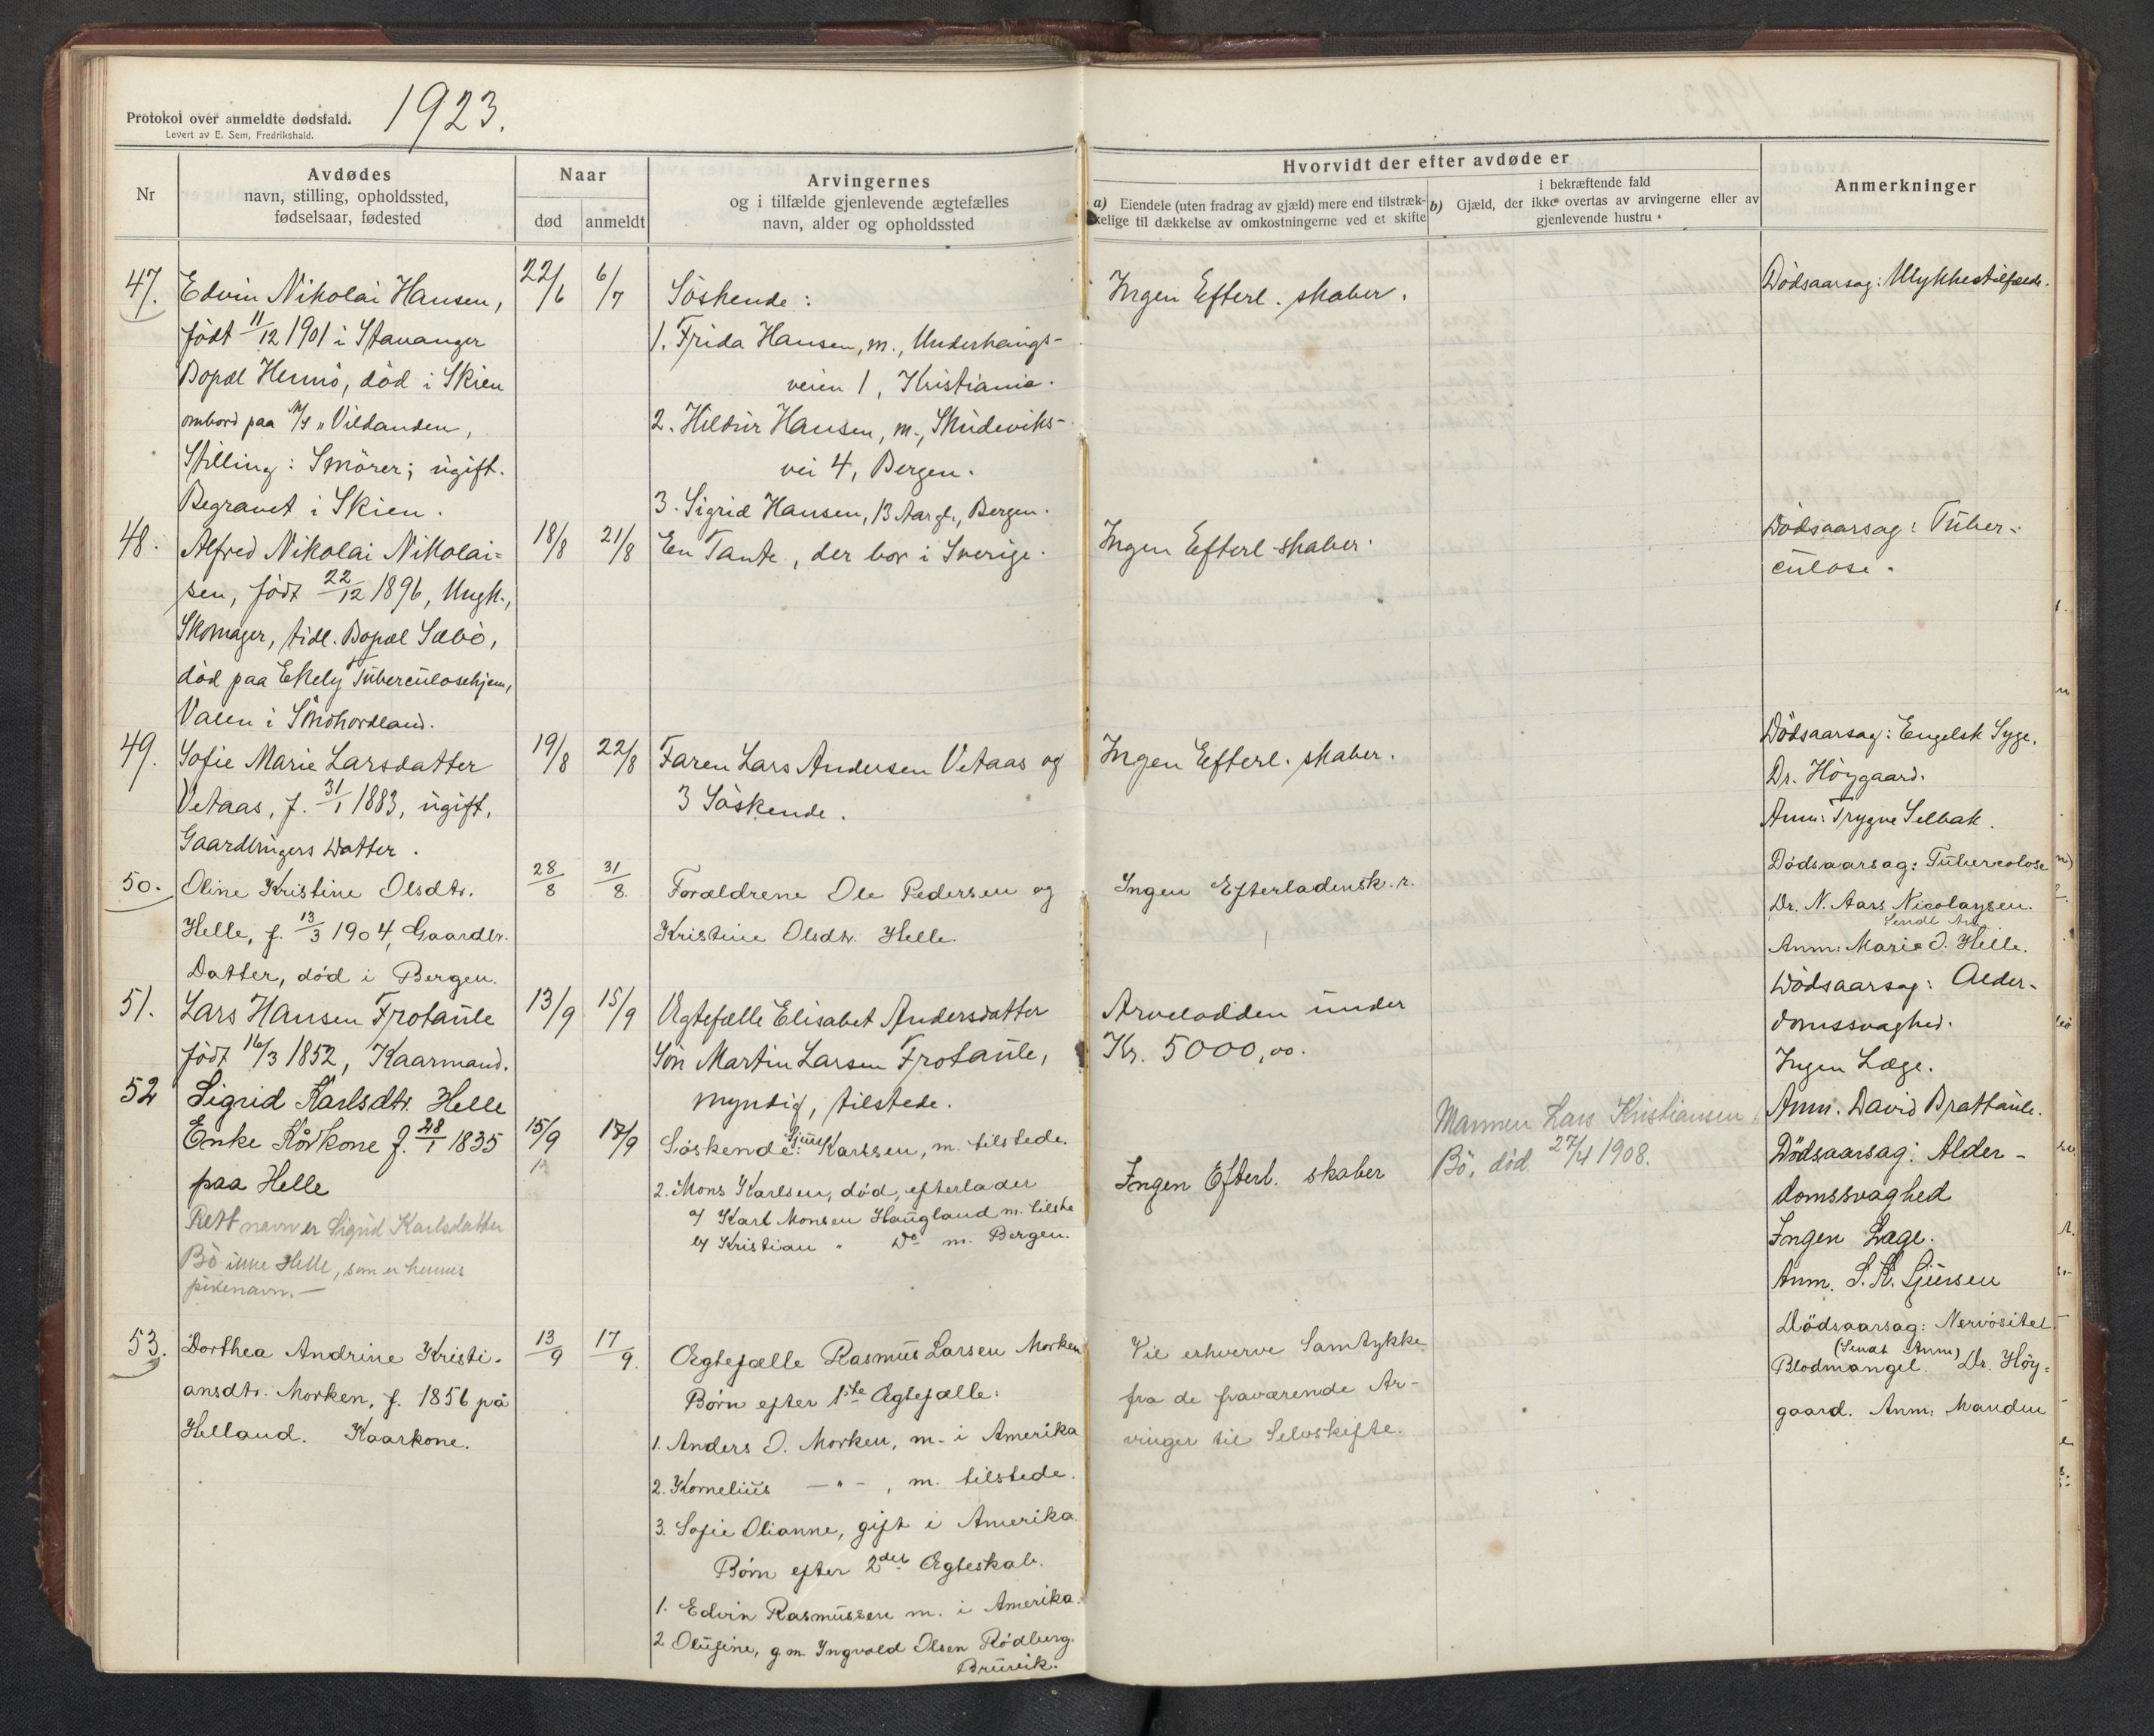 Protokol over anmeldte dødsfald.
Levert av E. Sem, Fredrikshald.
1923.
Nr
Avdødes
navn, stilling, opholdssted,
fødselsaar, fødested
Naar
død
anmeldt
Arvingernes
og i tilfælde gjenlevende ægtefælles
navn, alder og opholdssted
Hvorvidt der efter avdøde er
a) Eiendele (uten fradrag av gjæld) mere end tilstræk-
kelige til dækkelse av omkostningerne ved et skifte
i bekræftende fald
b) Gjæld, der ikke overtas av arvingerne eller av
gjenlevende hustru
Anmerkninger
47.
Edvin Nikolai Hansen,
født 11/12 1901 i Stavanger
Bopæl Hennö, död i Skien
ombord paa M/S "Vildanden,
Stilling: Smörer; ugift.
Begravet i Skien.
22/6
6/7
Söskende:
1. Frida Hansen, m., Underhaugs-
veien 1, Kristiania.
2. Hildur Hansen, m., Skudeviks-
vei 4, Bergen.
3. Sigrid Hansen, 13 Aar gl., Bergen.
Ingen Efterl. skaber.
Dödsaarsag: Ulykkestilfælde.
48.
Alfred Nikolai Nikolai-
sen, födt 22/12 1896, Ungk.,
Skomager, tidl. Bopæl Sæbö,
död paa Ekely Tuberculosehjem,
Valen i Söndhordland.
18/8
21/8
En Tante, der bor i Sverige.
Ingen Efterl. skaber.
Dödsaarsag: Tuber-
culose.
49.
Sofie Marie Larsdatter
Vetaas, f. 31/1 1883, ugift,
Gaardbrugers Datter.
19/8
22/8
Faren Lars Andersen Vetaas og
3 Söskende.
Ingen Efterl. skaber.
Dödsaarsag: Engelsk Syge.
Dr. Höygaard.
Anm: Trygve Selbak.
50.
Oline Kristine Olsdtr.
Helle, f. 13/3 1904, Gaardbr.
Datter, död i Bergen.
28/8
31/8.
Forældrene Ole Pedersen og
Kristine Olsdtr. Helle.
Ingen Efterladensk.r.
Dödsaarsag: Tuberculose
Dr. N. Aars Nicolaysen.
Sendt
Anm: Marie O. Helle.
51.
Lars Hansen Frotaule
födt 16/3 1852, Kaarmand.
13/9
15/9
Ægtefælle Elisabet Andersdatter
Sön Martin Larsen Frotaule,
myndig, tilstede.
Arvelodden under
Kr. 5000,00.
Dödsaarsag: Alder-
domssvaghed.
Ingen Læge.
Anm. David Brattaule.
52
Sigrid Karlsdtr. Helle
Enke Kårkone f. 28/1 1835
paa Helle
Rett navn er Sigrid Karlsdatter
Bö ikke Helle, som er hennes
pikenavn.—
15/9
17/9
Söskende: Sjur Karlsen, m. tilstede.
2. Mons Karlsen, död, efterlader
a/ Karl Monsen Haugland m. tilste
b/ Kristian " Do m. Bergen.
Ingen Efterl. skaber
Mannen Lars Kristiansen
Bö, död 27/4 1908.
Dödsaarsag: Alder-
domssvaghed
Ingen Læge.
Anm. S. K. Sjursen
53.
Dorthea Andrine Kristi-
ansdtr. Morken, f. 1856 på
Helland. Kaarkone.
13/9
17/9.
Ægtefælle Rasmus Larsen Morken
Børn efter 1ste Ægtefælle:
1. Anders O. Morken, m. i Amerika
2. Kornelius —"—, m. tilstede.
3. Sofie Olianne, gift i Amerika.
Børn efter 2det Ægteskab.
1. Edvin Rasmussen m. i Amerika.
2 Olufine, g.m. Ingvald Olsen Rödberg.
Bruvik.
Vil erhverve Samtykke
fra de fraværende Ar-
vinger til Selvskifte.
Dödsaarsag: Nervösitet.
(Sendt Anm)
Blodmangel. Dr. Höy-
gaard. Anm: Manden